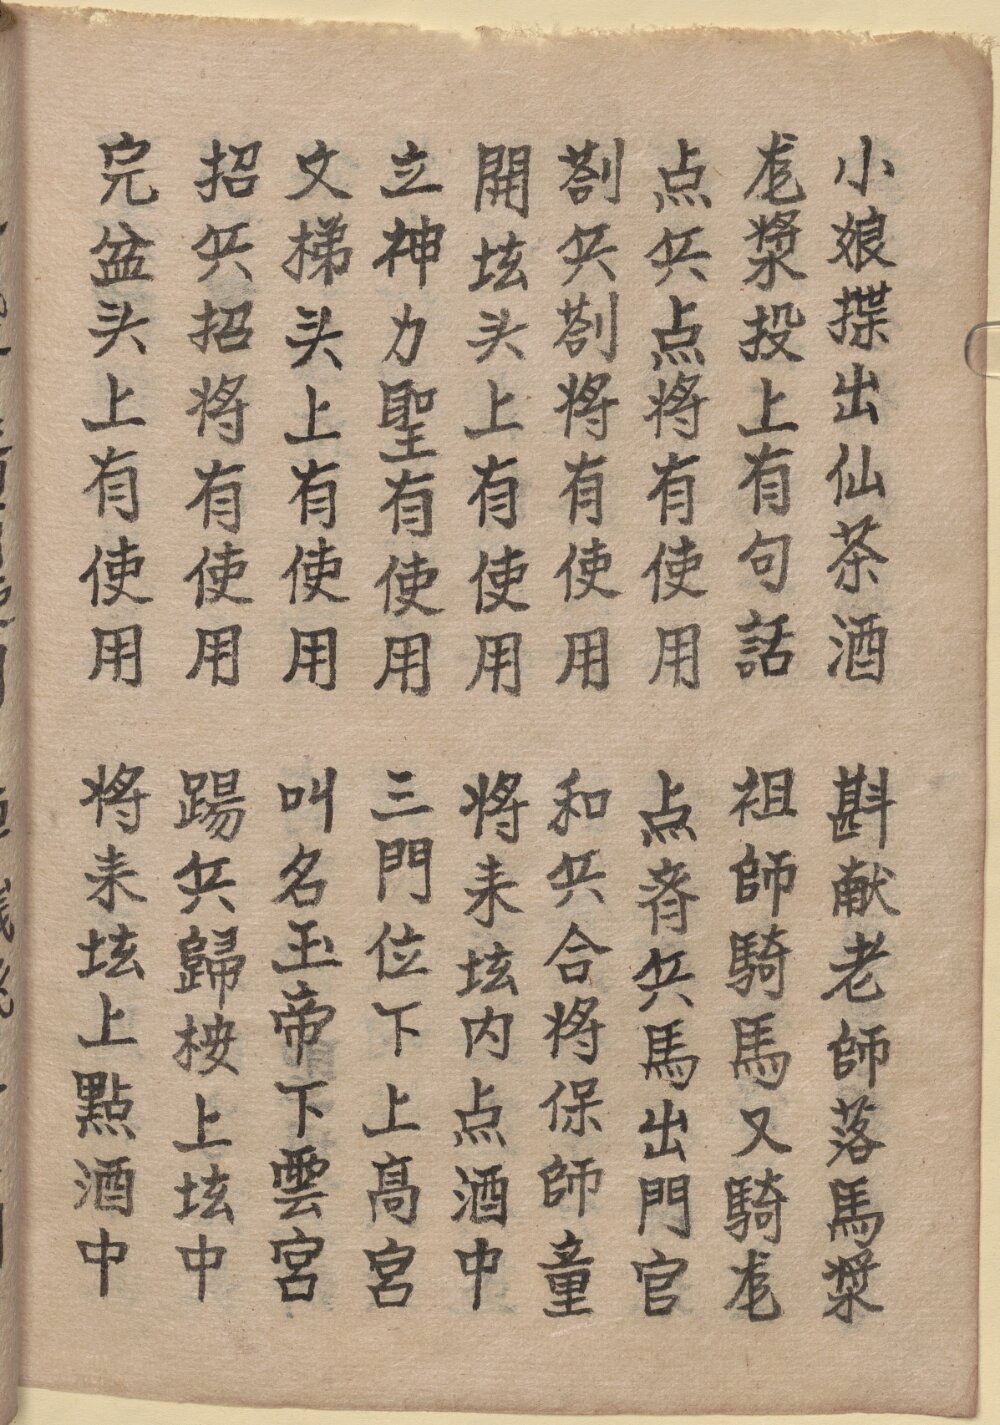 小娘揲出仙茶酒　斟献老師落馬漿
厐漿投上有句話　祖師騎馬又騎厐
点兵点将有使用　点齊兵馬出門官
劄兵劄将有使用　和兵合将保師童
開坛头上有使用　将来坛内点酒中
立神力聖有使用　三門位下上高宮
文梯头上有使用　叫名玉帝下雲宮
招兵招将有使用　踢兵歸桉上坛中
完盆头上有使用　将来坛上點酒中